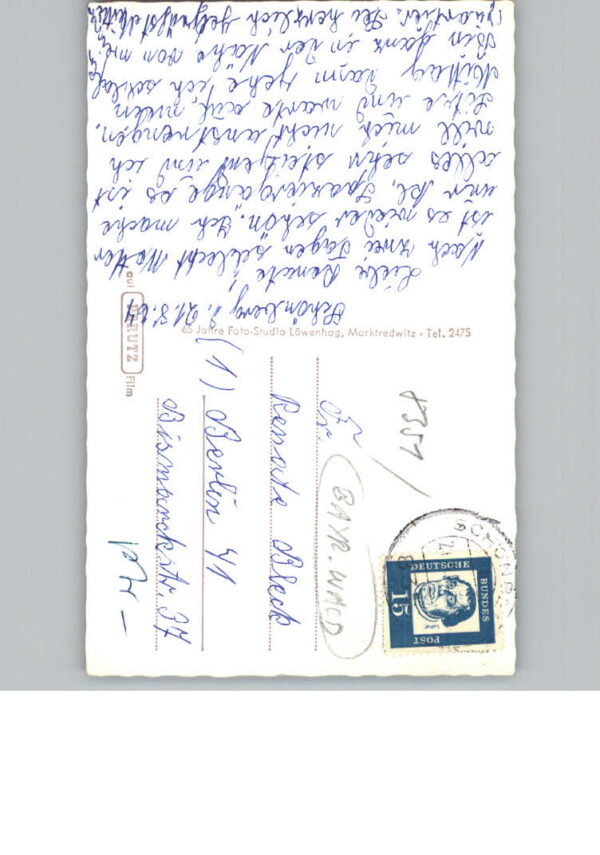 Schönberg, 21.8.64
Liebe Renate!
Nach zwei Tagen schlecht Wetter
ist es wieder schön. Ich mache
nur kl. Spaziergänge es ist
alles sehr steigend und ich
will mich nicht anstrengen.
Sitze und warte auf
Mittag dann gehe ich schlaf
Bin ganz in der Nähe von
Quartier. Sei herzlich gegrüßt
auf
PERUTZ
Film
65 Jahre Foto-Studio Löwenhag, Marktredwitz · Tel. 2475
Fr.
Renate Bleck
(1) Berlin 41
Bismarckstr. 37
8351/
BAYR. WALD
SCHÖNB
DEUTSCHE
BUNDES
POST
15
Luther